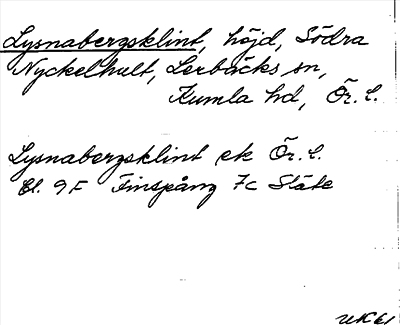 Lysnabergsklint, höjd, Södra
Nyckelhult, Lerbäcks sn,
Kumla hd, Ör. l.
Lysnabergsklint ek Ör. l.
Bl. 9F Finspång 7c Släte
UK 61